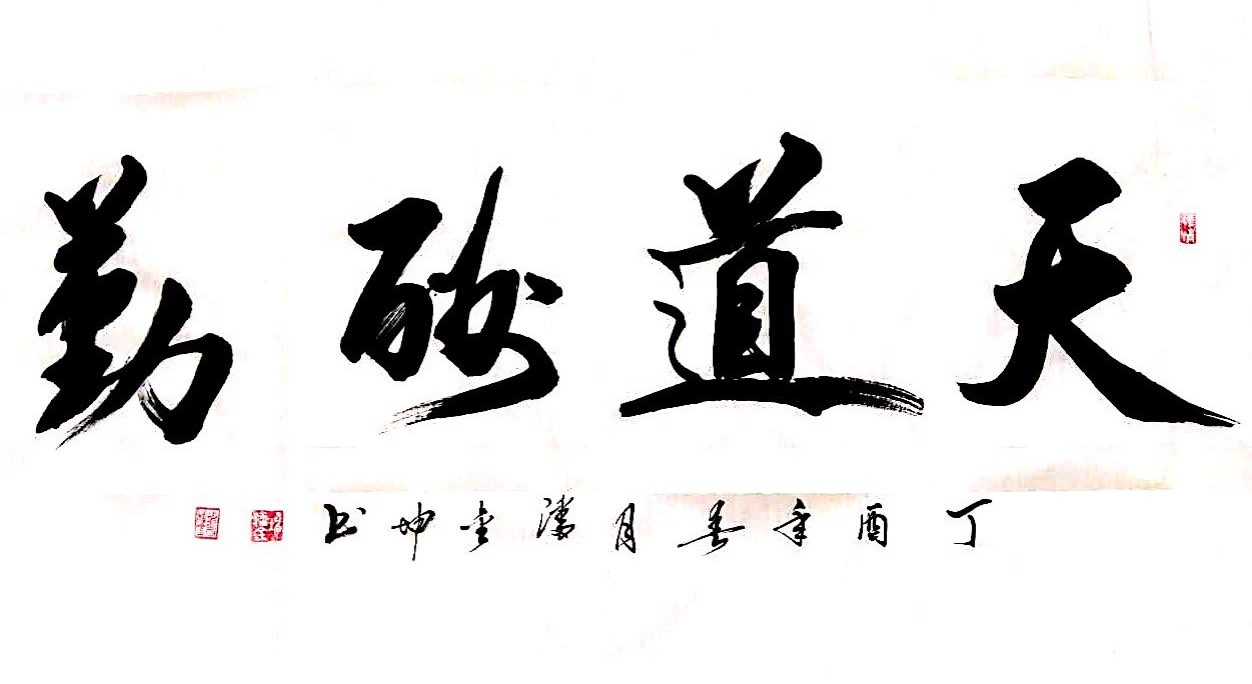 天道酬勤
丁酉年春月潘金坤书